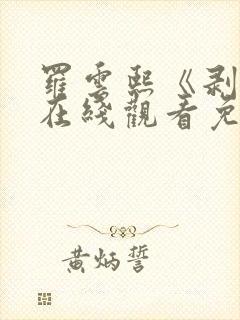 羅雲熙《剥
在綫觀看免
黃炳誓